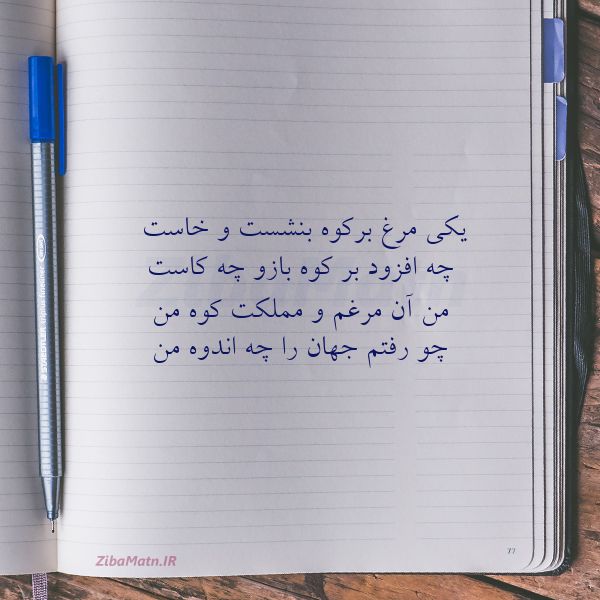 یکی مرغ برکوه بنشست و خاست
چه افزود بر کوه بازو چه کاست
من آن مرغم و مملکت کوه من
چو رفتم جهان را چه اندوه من
77
ZibaMatn.IR